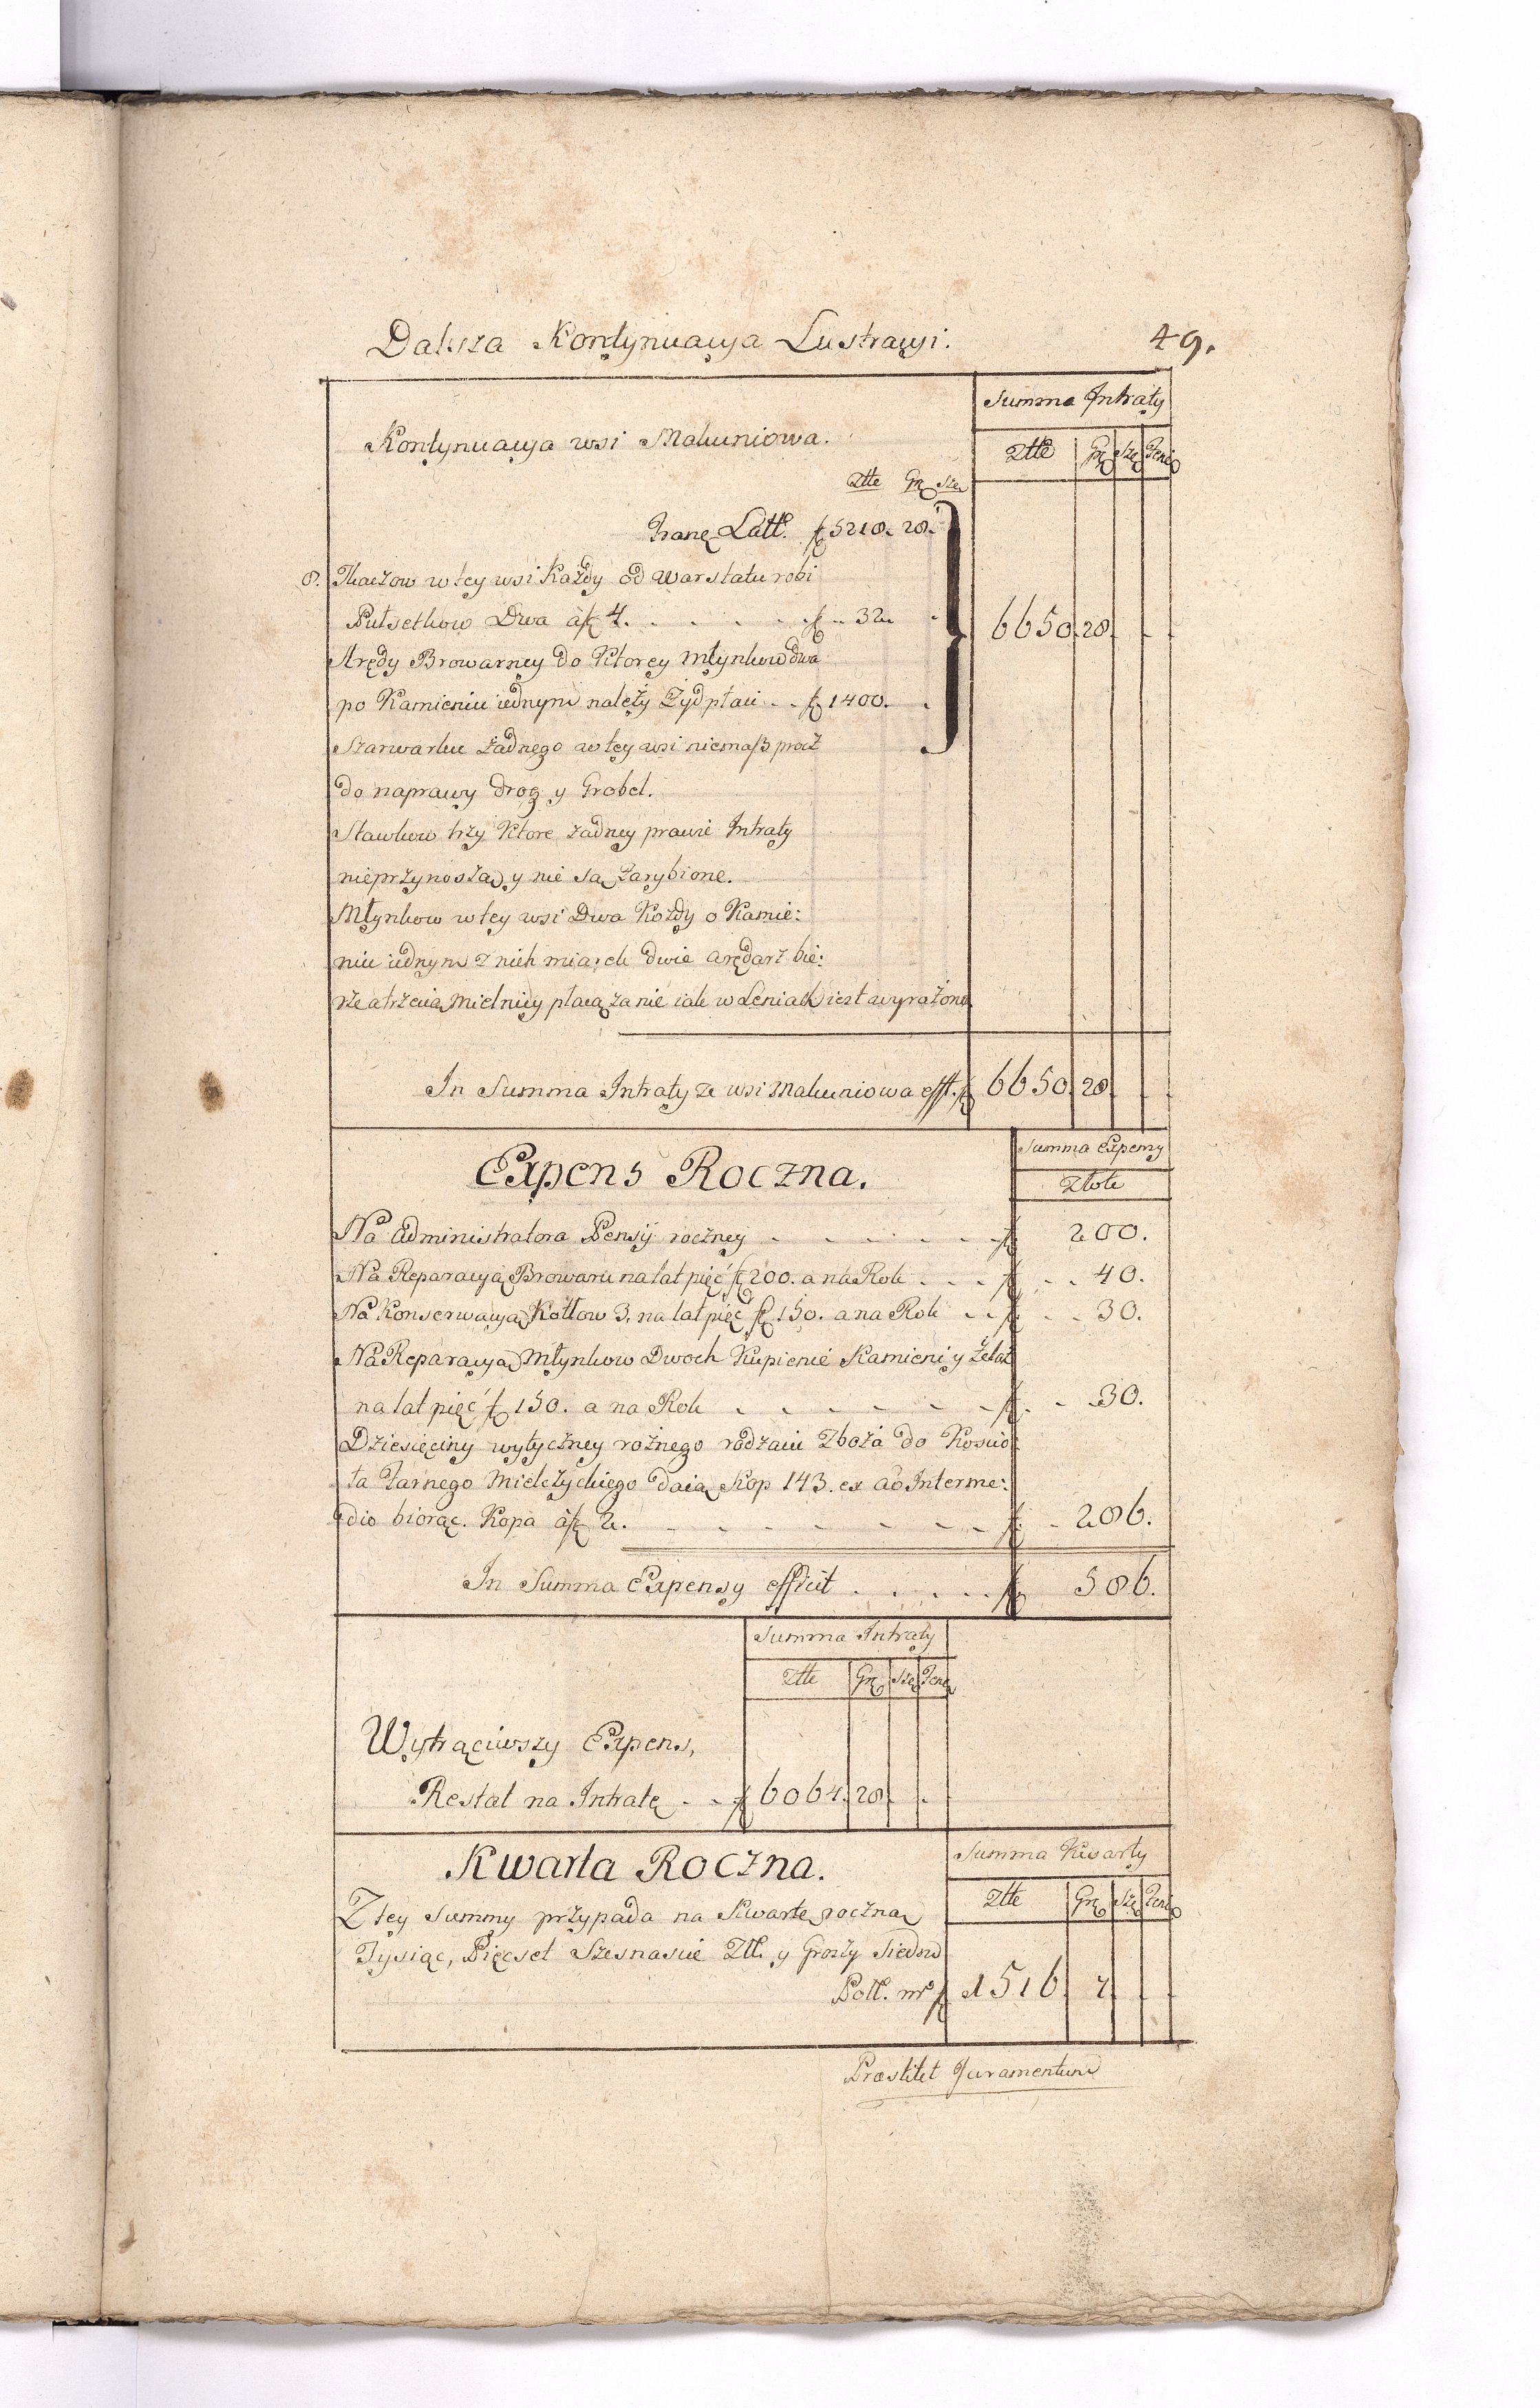 Dalsza Kontynuacya Lustracyi.
49.
Summa Intraty
Kontynuacya wsi Makuniowa.
Złłe Gr Sze Fenig
Złłe Gr Sze
Tranę Latt. f 5218. 28.
8. Tkaczow w tey wsi Każdy od Warstatu robi
Pułsetkow Dwa à f 4. . . . . . f .. 32.
6650. 28.
Arędy Browarney do Ktorey Młynkow dwa
po Kamieniu iednym należy Żyd płaci . . f 1400.
Szarwarku żadnego w tey wsi niemasz procz
do naprawy drog y Grobel.
Stawkow trzy Ktore żadney prawie Intraty
nieprzynoszą, y nie są zarybione.
Młynkow w tey wsi Dwa Kożdy o Kamie:
niu iednym z nich miarek dwie arędarz bie:
rze a trzecią Mielnicy płacą za nie iak w Leniach iest wyrażono
In Summa Intraty ze wsi Makuniowa efft. f 6650. 28.
Summa Expensy
Expens Roczna.
Złote
Na Administratora Pensij roczney . . . . . . f 200.
Na Reparacyą Browaru na lat pięć f 200. a na Rok . . . f . . 40.
Na Konserwacyą Kotłow 3. na lat pięć f 150. a na Rok . . f . . 30.
Na Reparacyą Młynkow Dwoch Kupienie Kamieni y Żelaz
na lat pięć f 150. a na Rok . . . . . . f . . 30.
Dziesięciny wytyczney rożnego rodzaiu Zboża do Koscio:
ła Farnego Mielżyckiego daią Kop 143. ex ao Interme:
dio biorąc. Kopa à f 2. . . . . . . . f . 286.
In Summa Expensy efficit . . . . . f 586.
Summa Intraty
Złłe Gr Sze Feni
Wytrąciwszy Expens,
Restat na Intratę . . f 6064. 28.
Summa Kwarty
Kwarta Roczna.
Złłe Gr Sze Feni
Z tey Summy przypada na Kwartę roczną
Tysiąc, Pięcset Szesnascie Złł. y Groszy Siedm
Poll. mo f 1516. 7.
Præstitit Juramentum